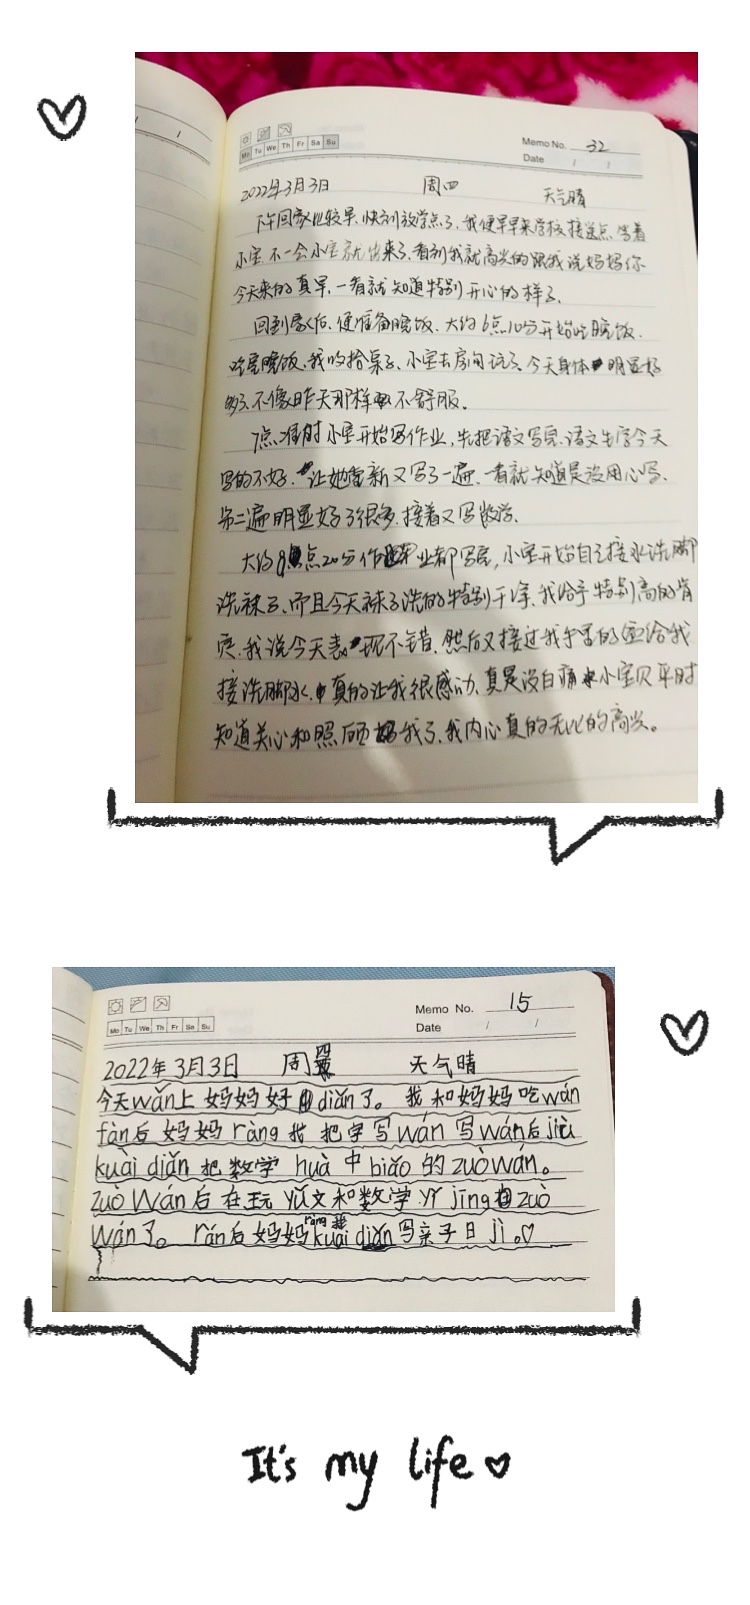 Mo Tu We Th Fr Sa Su
Memo No. 32
Date / /
2022年3月3日 周四 天气晴
下午回家比较早,快到放学点了,我便早早来学校接送点,等着
小宝,不一会小宝就出来了,看到我就高兴的跟我说妈妈你
今天来的真早,一看就知道特别开心的样子。
回到家后,便准备晚饭、大约6点10分开始吃晚饭,
吃完晚饭,我收拾桌子,小宝去房间玩了,今天身体明显好
多了,不像昨天那样不舒服。
7点准时小宝开始写作业,先把语文写完,语文生字今天
写的不好,让她重新又写了一遍,一看就知道是没用心写,
第二遍明显好了很多,接着又写数学,
大约8点20分作业都写完,小宝开始自己接水洗脚
洗袜子,而且今天袜子洗的特别干净,我给予特别高的肯
定,我说今天表现不错,然后又接过我手里的盆给我
接洗脚水,真的让我很感动,真是没白疼小宝贝平时
知道关心和照顾我了,我内心真的无比的高兴。
Memo No. 15
Mo Tu We Th Fr Sa Su
Date / /
2022年3月3日 周四 天气晴
今天wǎn上妈妈好diǎn了。我和妈妈吃wán
fàn后妈妈ràng我把字写wán写wán后jiù
kuài diǎn把数学huà中biǎo的zuòwán。
zuò wán后在玩yǔ文和数学yǐ jīng zuò
wán了。rán后妈妈ràng我kuài diǎn写亲子日jì。♡
It's my life